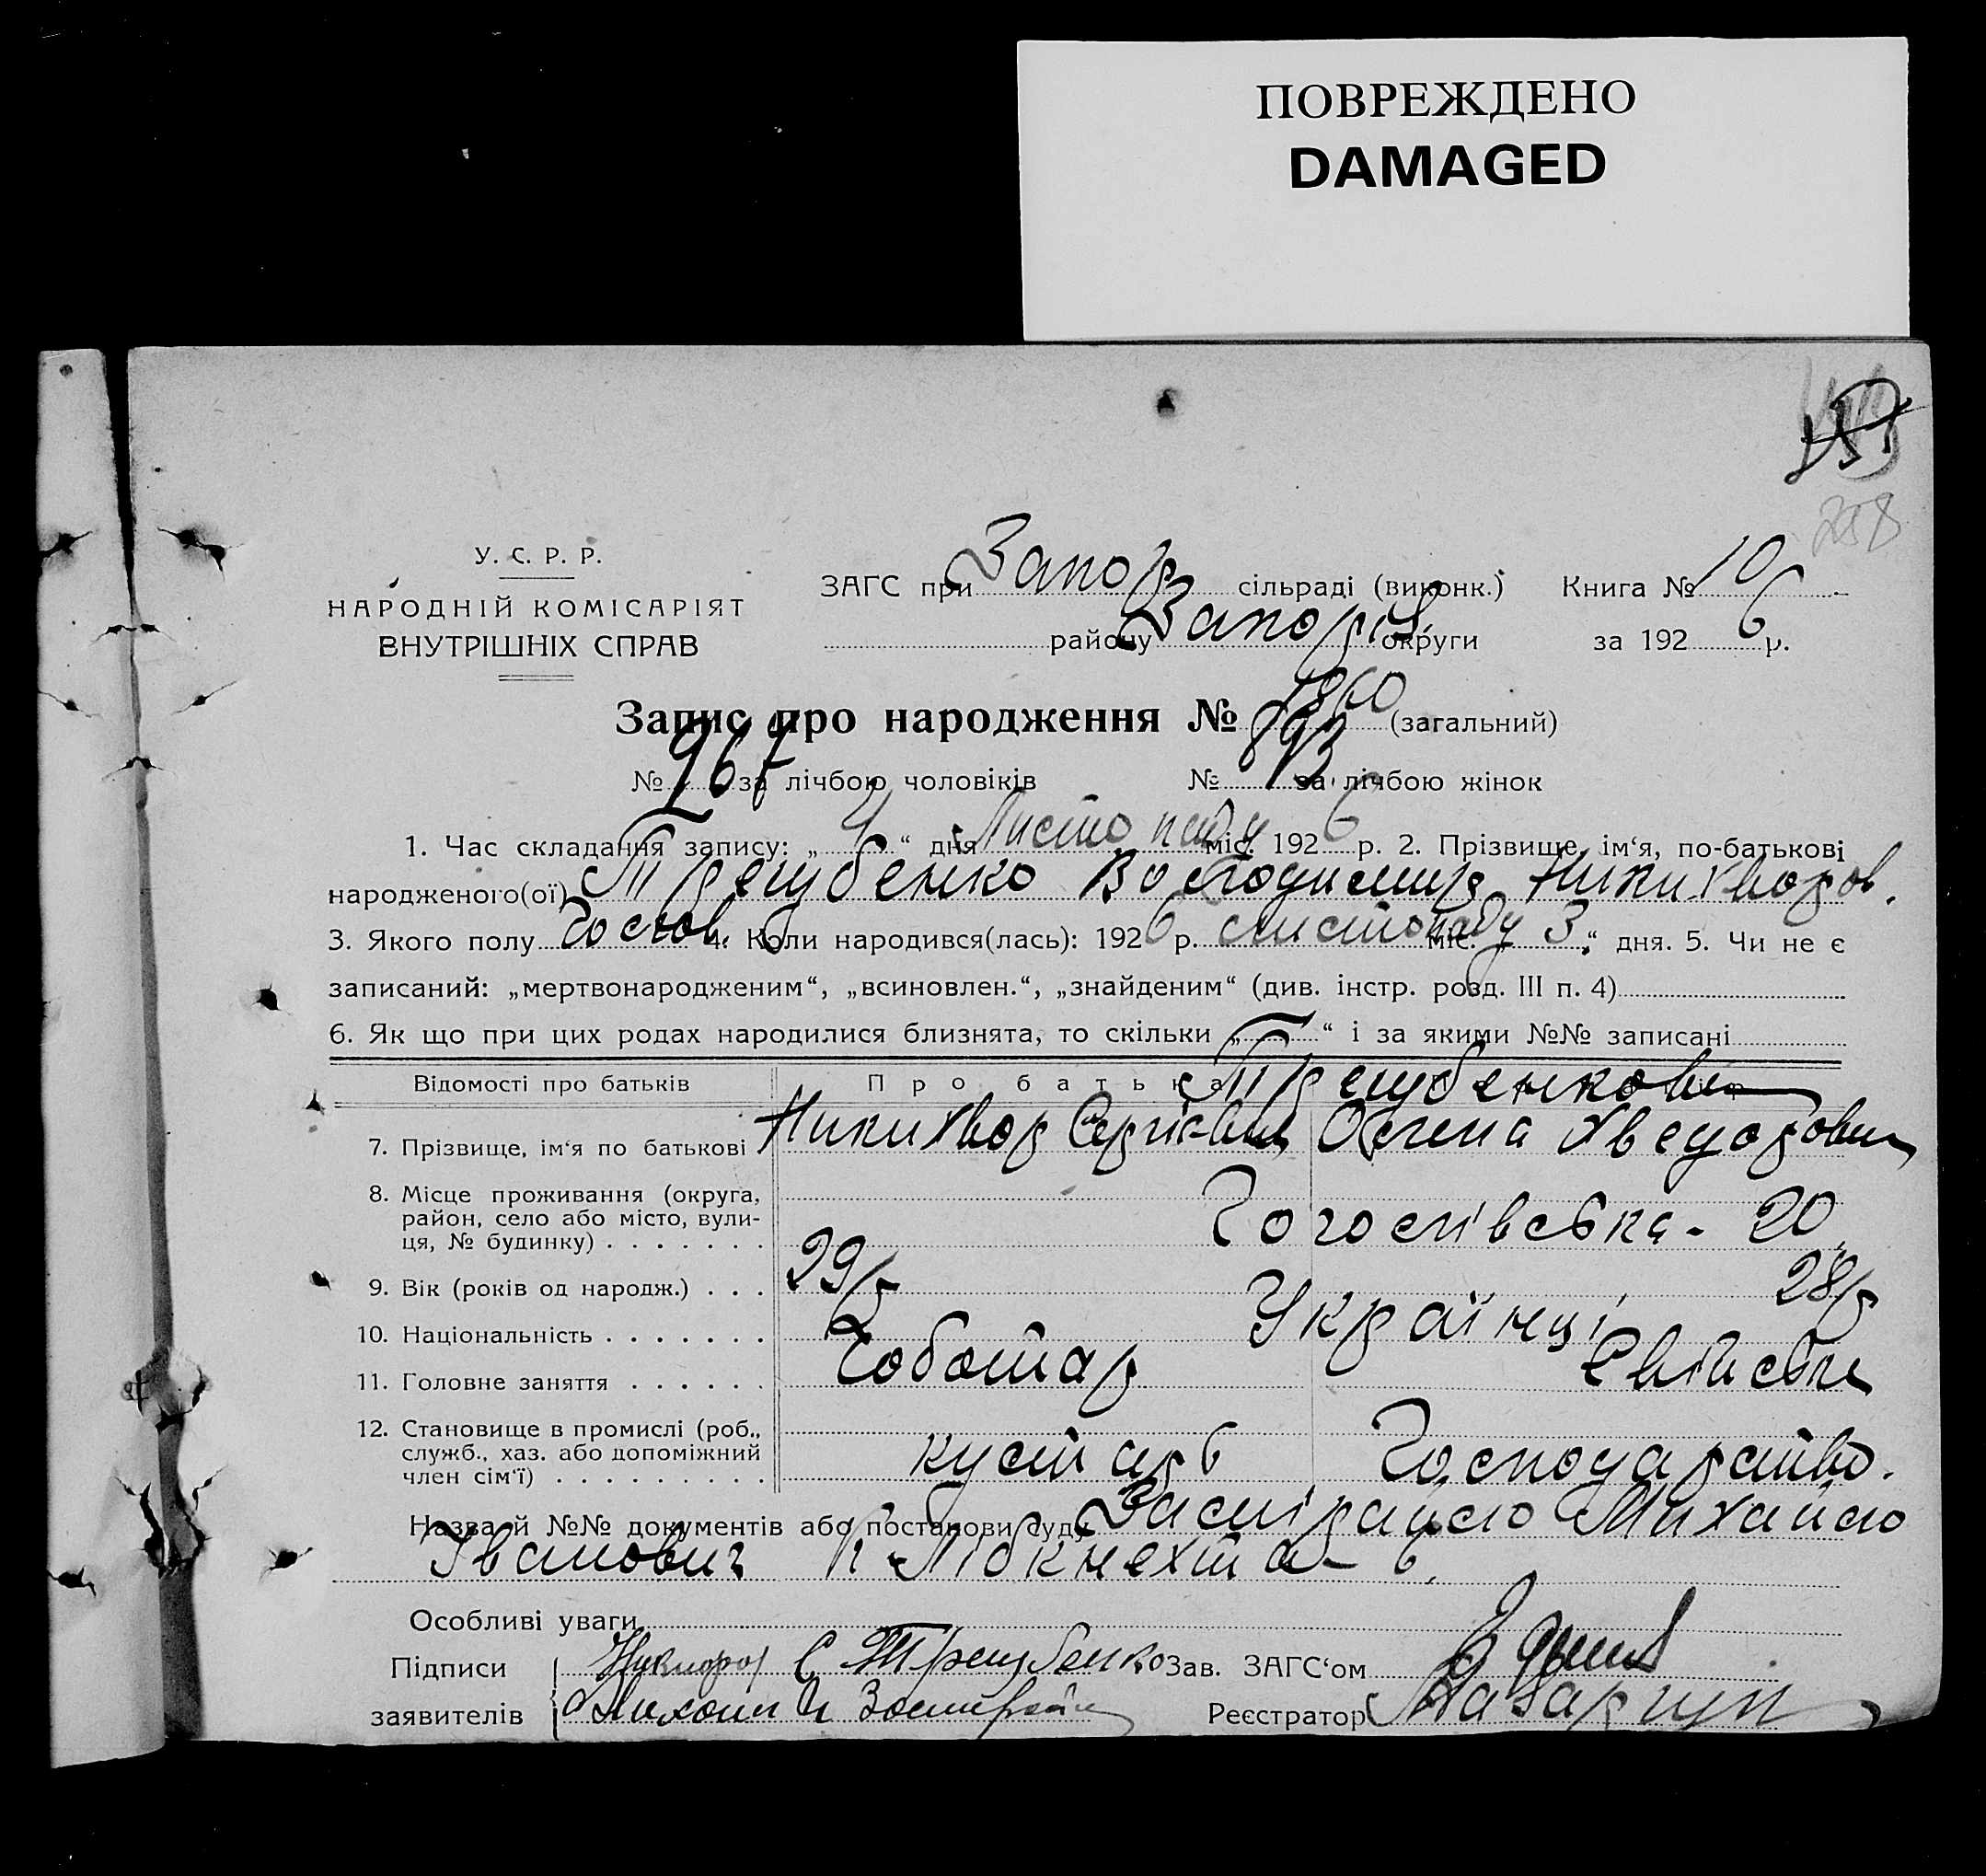 ПОВРЕЖДЕНО
DAMAGED
258
У. С. Р. Р.
НАРОДНІЙ КОМІСАРІЯТ
ВНУТРІШНІХ СПРАВ
ЗАГС при Запор сільраді (виконк.) Книга № 10
району Запоріз. округи за 192 6 р.
Запис про народження № 1860 (загальний)
№ 967 за лічбою чоловіків № 893 за лічбою жінок
1. Час складання запису: „ 4 “ дня Листопаду міс. 192 6 р. 2. Прізвище, ім‘я, по-батькові
народженого(ої) Трегубенко Володимир Никихворов.
3. Якого полу чолов. 4. Коли народився(лась): 192 6 р. листопаду міс. „ 3 “ дня. 5. Чи не є
записаний: „мертвонародженим“, „всиновлен.“, „знайденим“ (див. інстр. розд. III п. 4)
6. Як що при цих родах народилися близнята, то скільки „ “ і за якими №№ записані
Відомості про батьків Про батька Трегубенкови
7. Прізвище, ім‘я по батькові Никихвор Сергієвич Олена Хведоровна
8. Місце проживання (округа,
район, село або місто, вули-
ця, № будинку) . . . . . . . Гоголівська - 20
9. Вік (років од народж.) . . . 29/5 28/5
10. Національність . . . . . . . Українці
11. Головне заняття . . . . . . Чоботар Свійське
12. Становище в промислі (роб.,
служб., хаз. або допоміжний
член сім‘ї) . . . . . . . . . кустарь Господарство.
Назва й №№ документів або постанови суду Михайло
Іванович К Лібкнехта - 6.
Особливі уваги
Підписи С Трегубенко Зав. ЗАГС‘ом
заявителів Михаил И Реєстратор